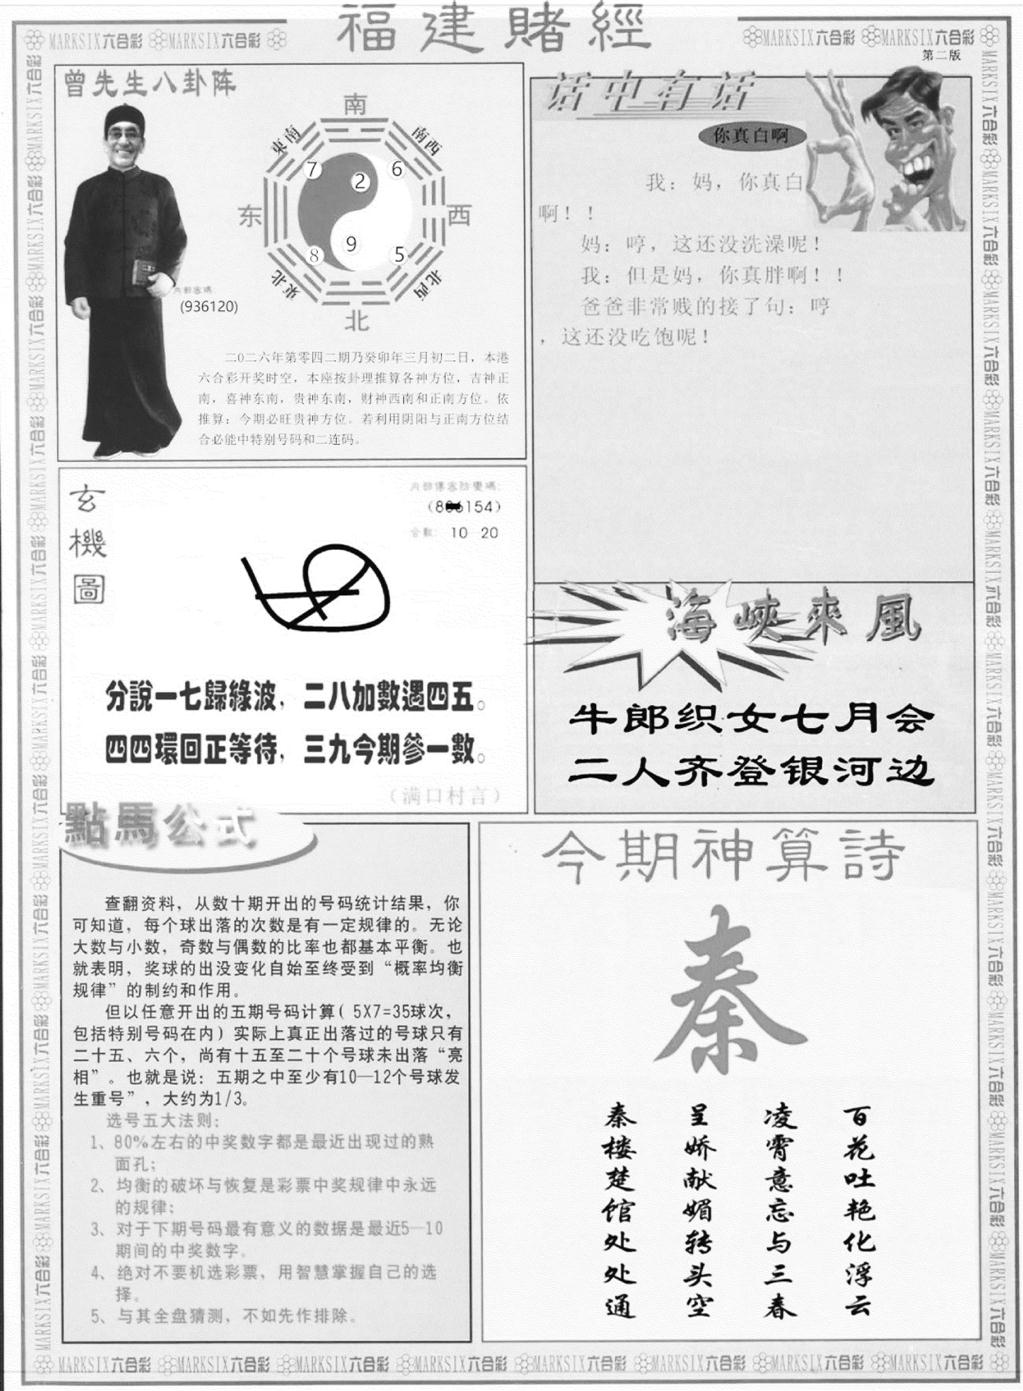 福建賭經
MARKSIX六合彩 MARKSIX六合彩
MARKSIX六合彩 MARKSIX六合彩
第二版
曾先生八卦阵
南
東南
南西
7
2
6
东
西
8
9
5
東北
北西
北
内部密碼:
(936120)
二0二六年第零四二期乃癸卯年三月初二日，本港
六合彩开奖时空，本座按卦理推算各神方位，吉神正
南，喜神东南，贵神东南，财神西南和正南方位。依
推算：今期必旺贵神方位。若利用阴阳与正南方位结
合必能中特别号码和二连码。
话中有话
你真白啊
我：妈，你真白
啊！！
妈：哼，这还没洗澡呢！
我：但是妈，你真胖啊！！
爸爸非常贱的接了句：哼
，这还没吃饱呢！
玄機圖
内部傳密防變碼:
合數: 10 20
分説一七歸綠波，二八加數遇四五。
四四環回正等待，三九今期參一數。
（满口村言）
海峽來風
牛郎织女七月会
二人齐登银河边
點馬公式
查翻资料，从数十期开出的号码统计结果，你
可知道，每个球出落的次数是有一定规律的。无论
大数与小数，奇数与偶数的比率也都基本平衡。也
就表明，奖球的出没变化自始至终受到“概率均衡
规律”的制约和作用。
但以任意开出的五期号码计算( 5X7=35球次，
包括特别号码在内）实际上真正出落过的号球只有
二十五、六个，尚有十五至二十个号球未出落“亮
相”。也就是说：五期之中至少有10—12个号球发
生重号”，大约为1/3。
选号五大法则：
1、80%左右的中奖数字都是最近出现过的熟
面孔；
2、均衡的破坏与恢复是彩票中奖规律中永远
的规律；
3、对于下期号码最有意义的数据是最近5—10
期间的中奖数字。
4、绝对不要机选彩票，用智慧掌握自己的选
择。
5、与其全盘猜测，不如先作排除。
今期神算詩
秦
百花吐艳化浮云
凌霄意忘与三春
呈娇献媚转头空
秦楼楚馆处处通
MARKSIX六合彩 MARKSIX六合彩 MARKSIX六合彩 MARKSIX六合彩 MARKSIX六合彩 MARKSIX六合彩 MARKSIX六合彩 MARKSIX六合彩